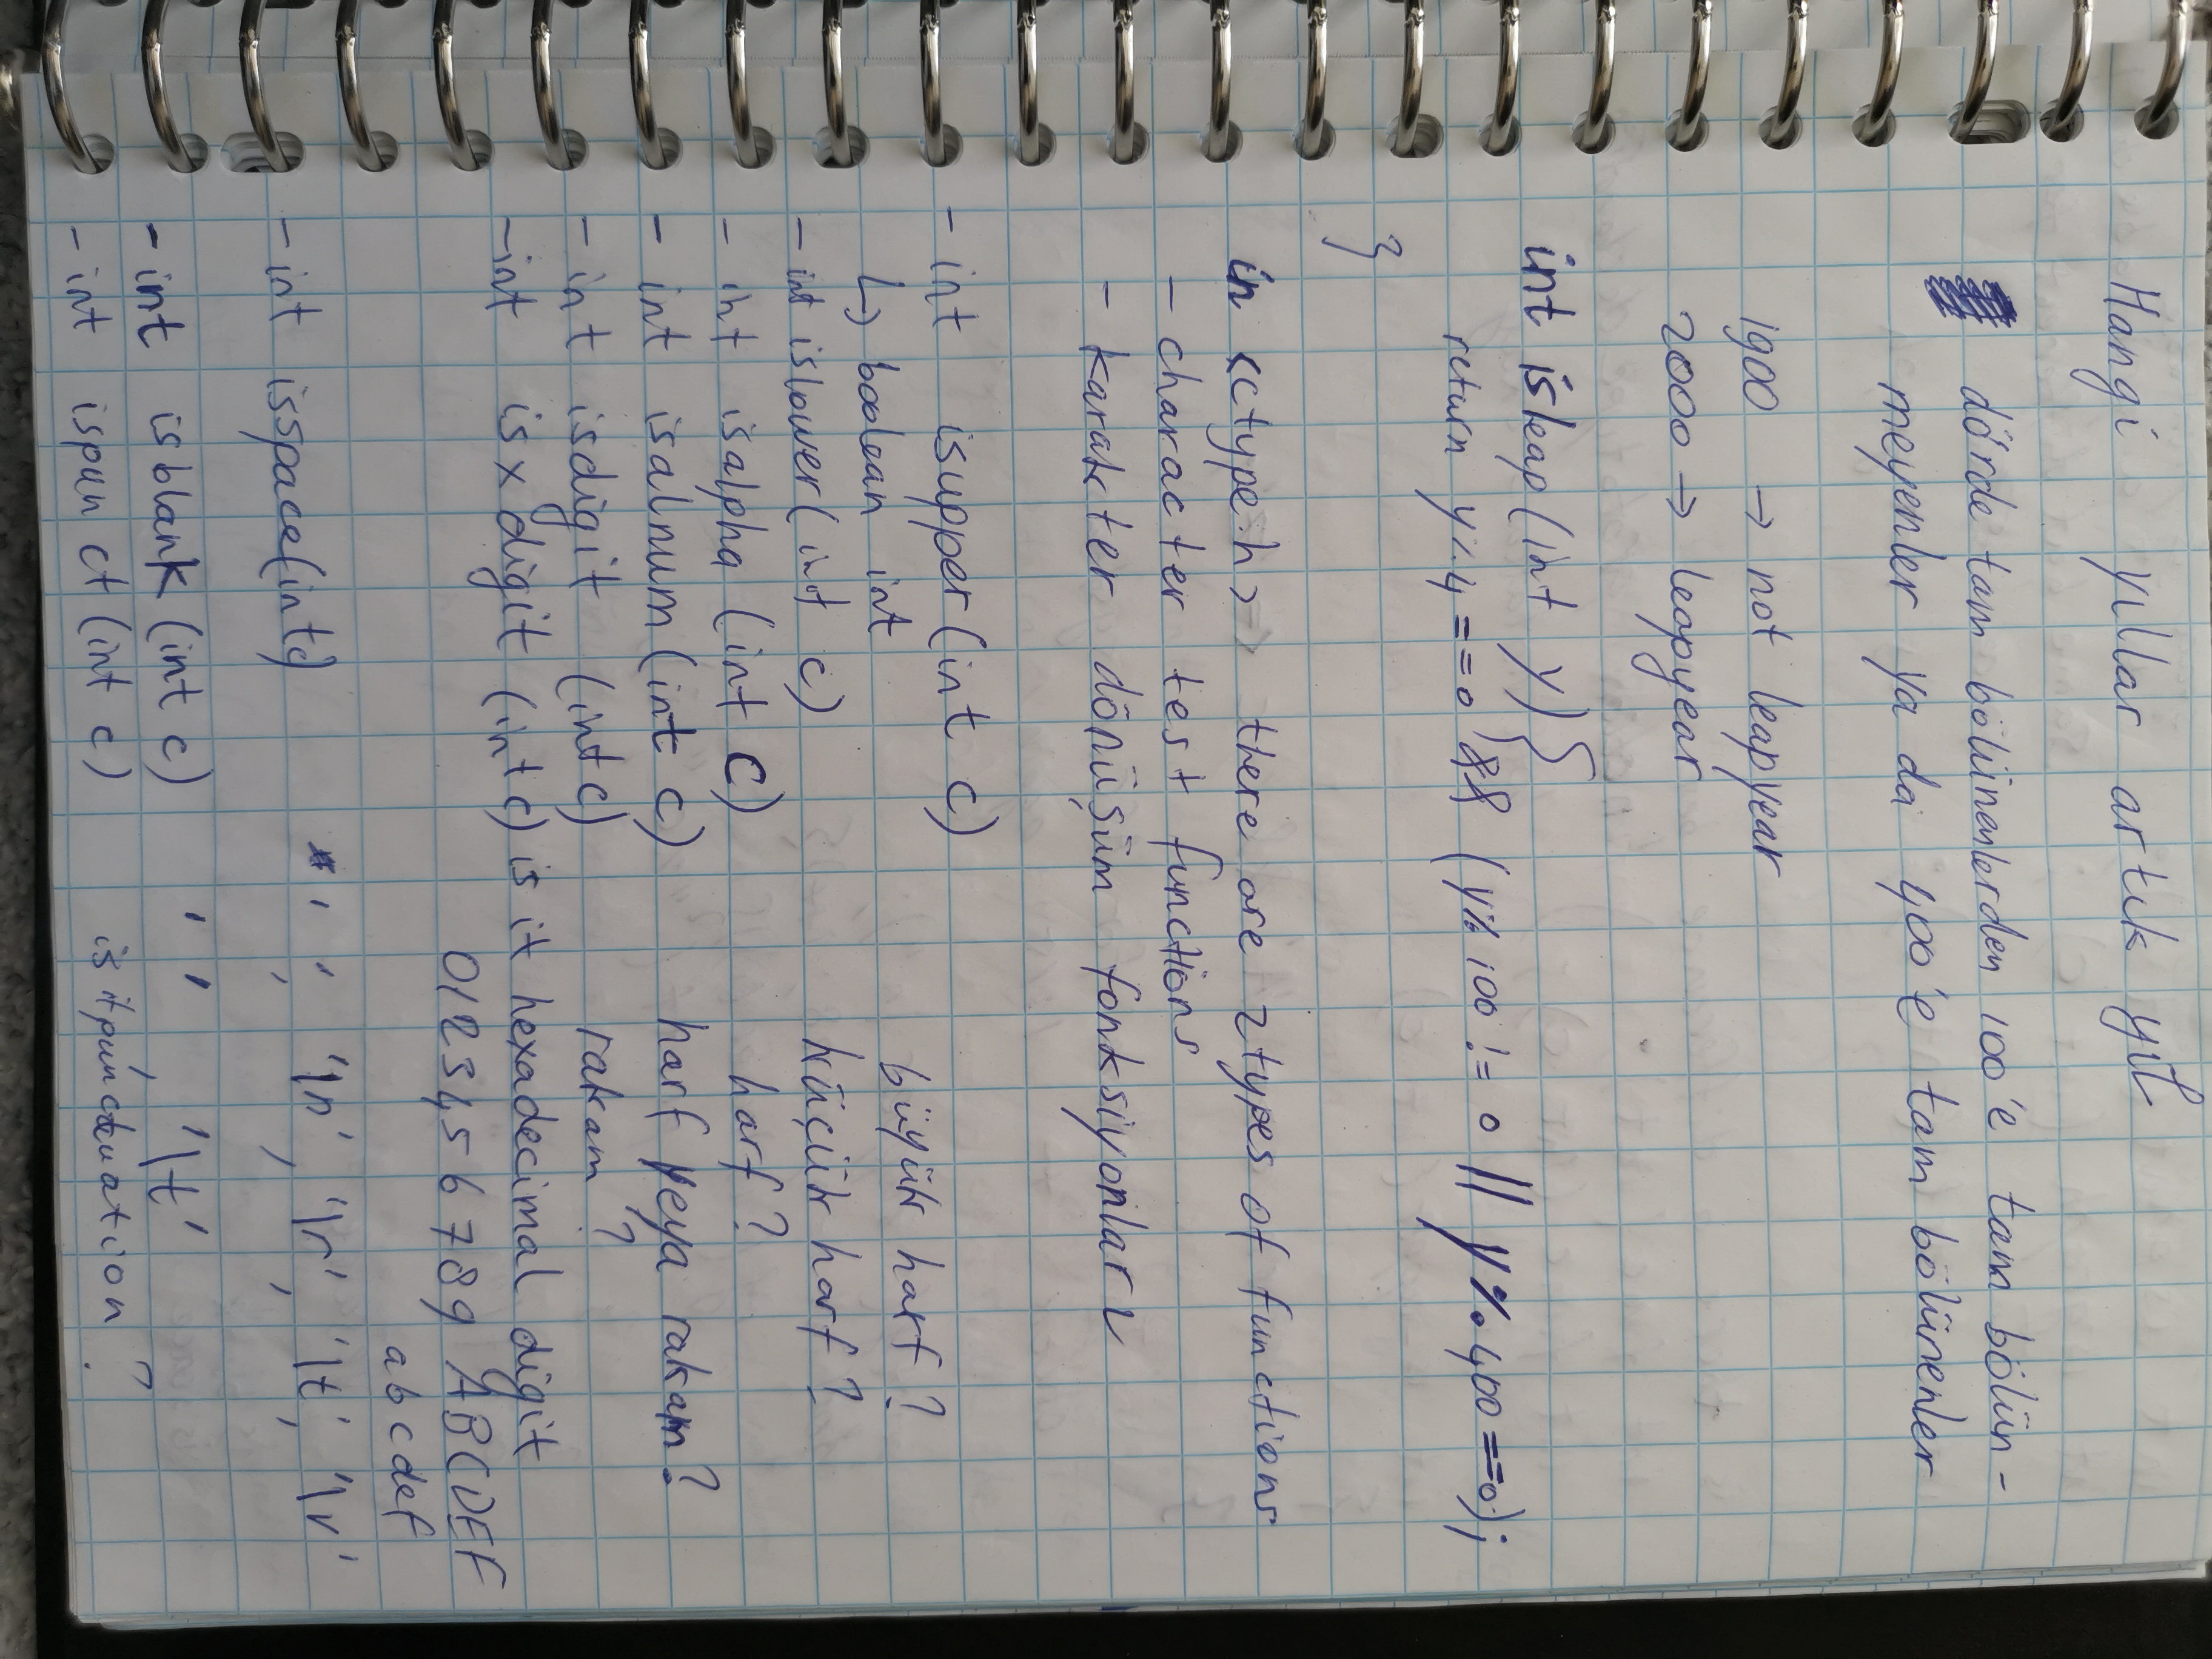 Hangi yıllar artık yıl
dörde tam bölünenlerden 100'e tam bölün-
meyenler ya da 400'e tam bölünenler
1900 → not leapyear
2000 → leapyear
int isleap(int y){
return y%4==0 && (y%100 != 0 || y%400==0);
}
in <ctype.h> there are 2 types of functions
- character test functions
- karakter dönüşüm fonksiyonları
- int isupper(int c)
büyük harf?
↳ boolean int
- int islower(int c) küçük harf?
- int isalpha (int c) harf?
- int isalnum (int c) harf veya rakam?
- int isdigit (int c) rakam?
- int isxdigit (int c) is it hexadecimal digit
0123456789 ABCDEF
abcdef
- int isspace(int c) ' ', '\n', '\r', '\t', '\v'
- int isblank (int c) ' ', '\t'
- int ispunct (int c) is it punctuation?